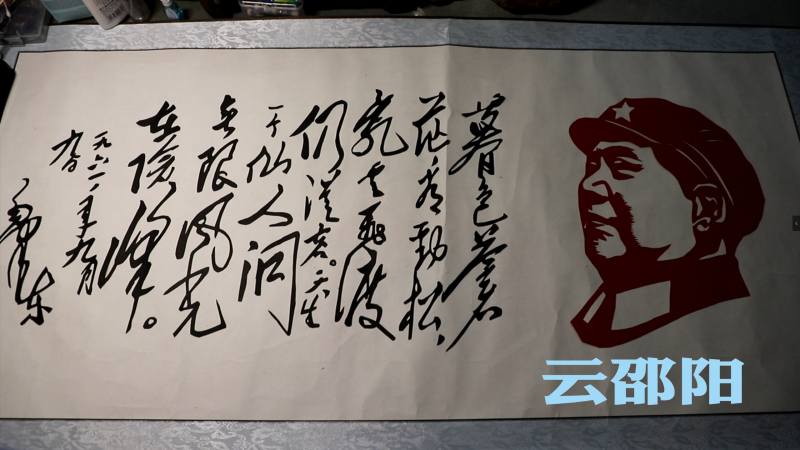 暮色蒼
茫看劲松,
乱云飛渡
仍從容。天生
一个仙人洞
无限风光
在險峰。
一九六一年九月
九日
毛泽东
云邵阳